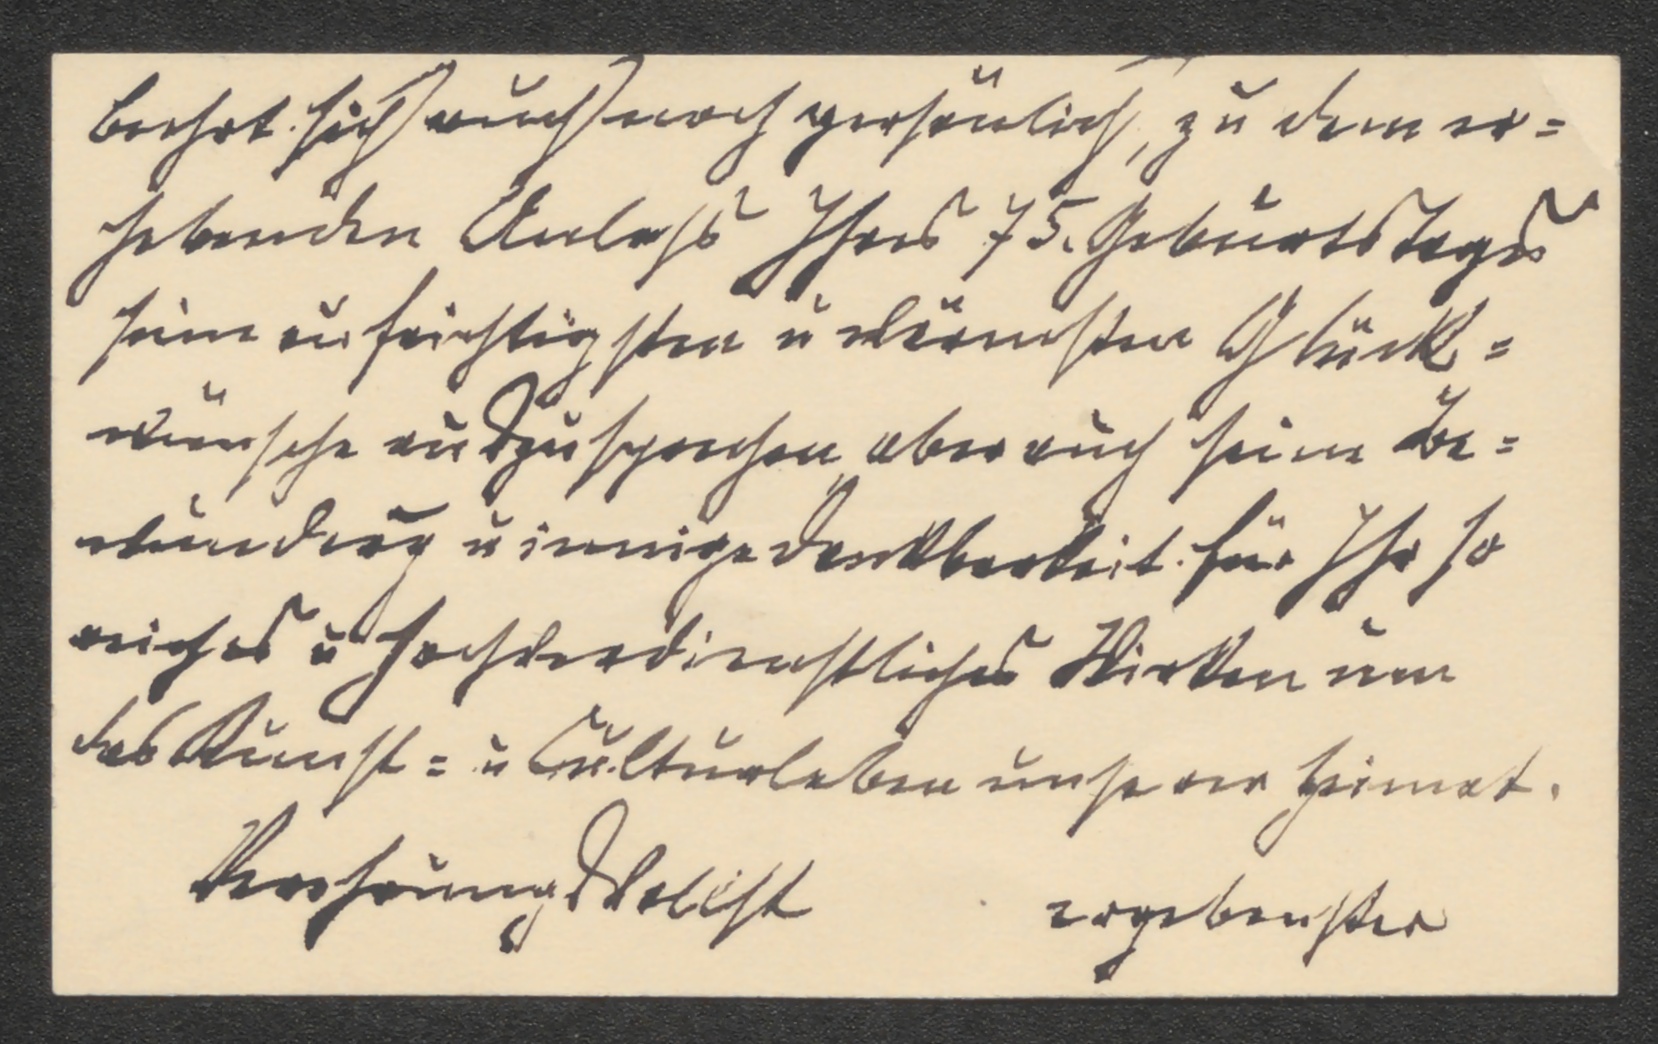 beehrt sich auch noch persönlich, zu dem er=
hebenden Anlass Ihres 75. Geburtstages
seine aufrichtigsten u wärmsten Glück=
wünsche auszusprechen, aber auch seine Be=
wunderung u innige Dankbarkeit für Ihr so
reiches u hochverdienstliches Wirken um
das Kunst= u Culturleben unserer Heimat.
Verehrungsvollst ergebenster